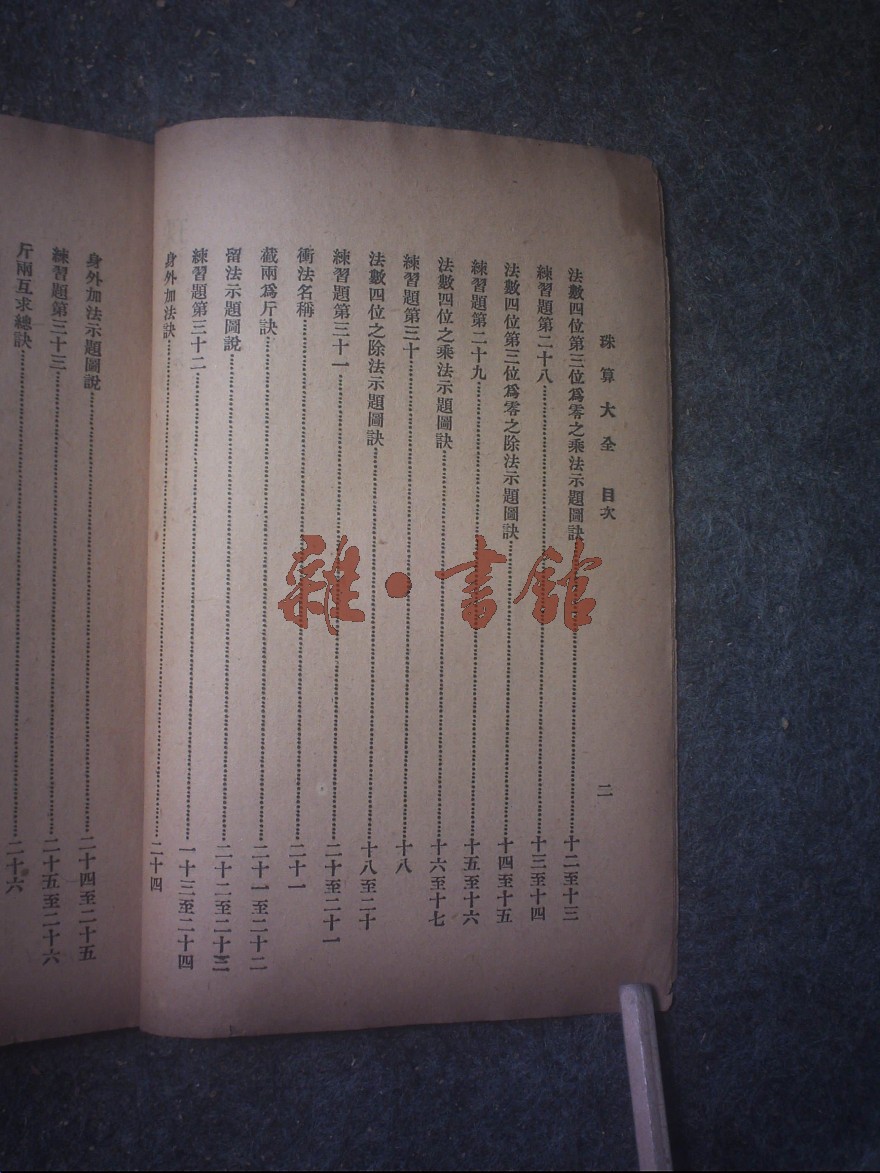 珠算大全 目次 二
法數四位第三位爲零之乘法示題圖訣 十二至十三
練習題第二十八 十三至十四
法數四位第三位爲零之除法示題圖訣 十四至十五
練習題第二十九 十五至十六
法數四位之乘法示題圖訣 十六至十七
練習題第三十 十八
法數四位之除法示題圖訣 十八至二十
練習題第三十一 二十至二十一
衝法名稱 二十一
截兩爲斤訣 二十一至二十二
留法示題圖說 二十二至二十三
練習題第三十二 一十三至二十四
身外加法訣 二十四
身外加法示題圖說 二十四至二十五
練習題第三十三 二十五至二十六
斤兩互求總訣 二十六
雜·書館